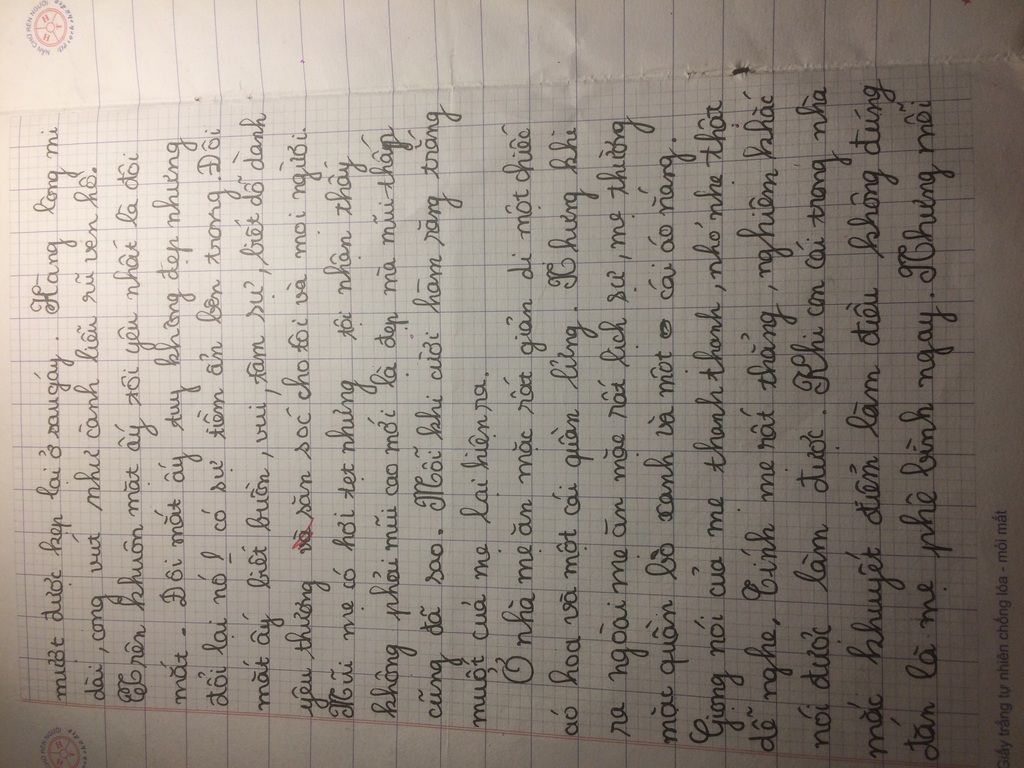 mượt được kẹp lại ở sau gáy. Hàng lông mi
dài, cong vút như cành liễu rũ ven hồ.
Trên khuôn mặt ấy tôi yêu nhất là đôi
mắt. Đôi mắt ấy tuy không đẹp nhưng
đổi lại nó có sự tiềm ẩn bên trong. Đôi
mắt ấy biết buồn, vui, tâm sự, biết dỗ dành
yêu thương và săn sóc cho tôi và mọi người.
Mũi mẹ có hơi tẹt nhưng tôi nhận thấy
không phải mũi cao mới là đẹp mà mũi thấp
cũng đã sao. Mỗi khi cười hàm răng trắng
muốt của mẹ lại hiện ra.
Ở nhà mẹ ăn mặc rất giản dị một chiếc
áo hoa và một cái quần lửng. Nhưng khi
ra ngoài mẹ ăn mặc rất lịch sự, mẹ thường
mặc quần bò xanh và một cái áo nắng.
Giọng nói của mẹ thanh thanh, nhỏ nhẹ thật
dễ nghe. Tính mẹ rất thẳng, nghiêm khắc
nói được làm được. Khi con cái trong nhà
mắc khuyết điểm làm điều không đúng
đắn là mẹ phê bình ngay. Nhưng nỗi
NÂN CHỮ RÈN NGƯỜI
Giấy trắng tự nhiên chống lóa - mỏi mắt